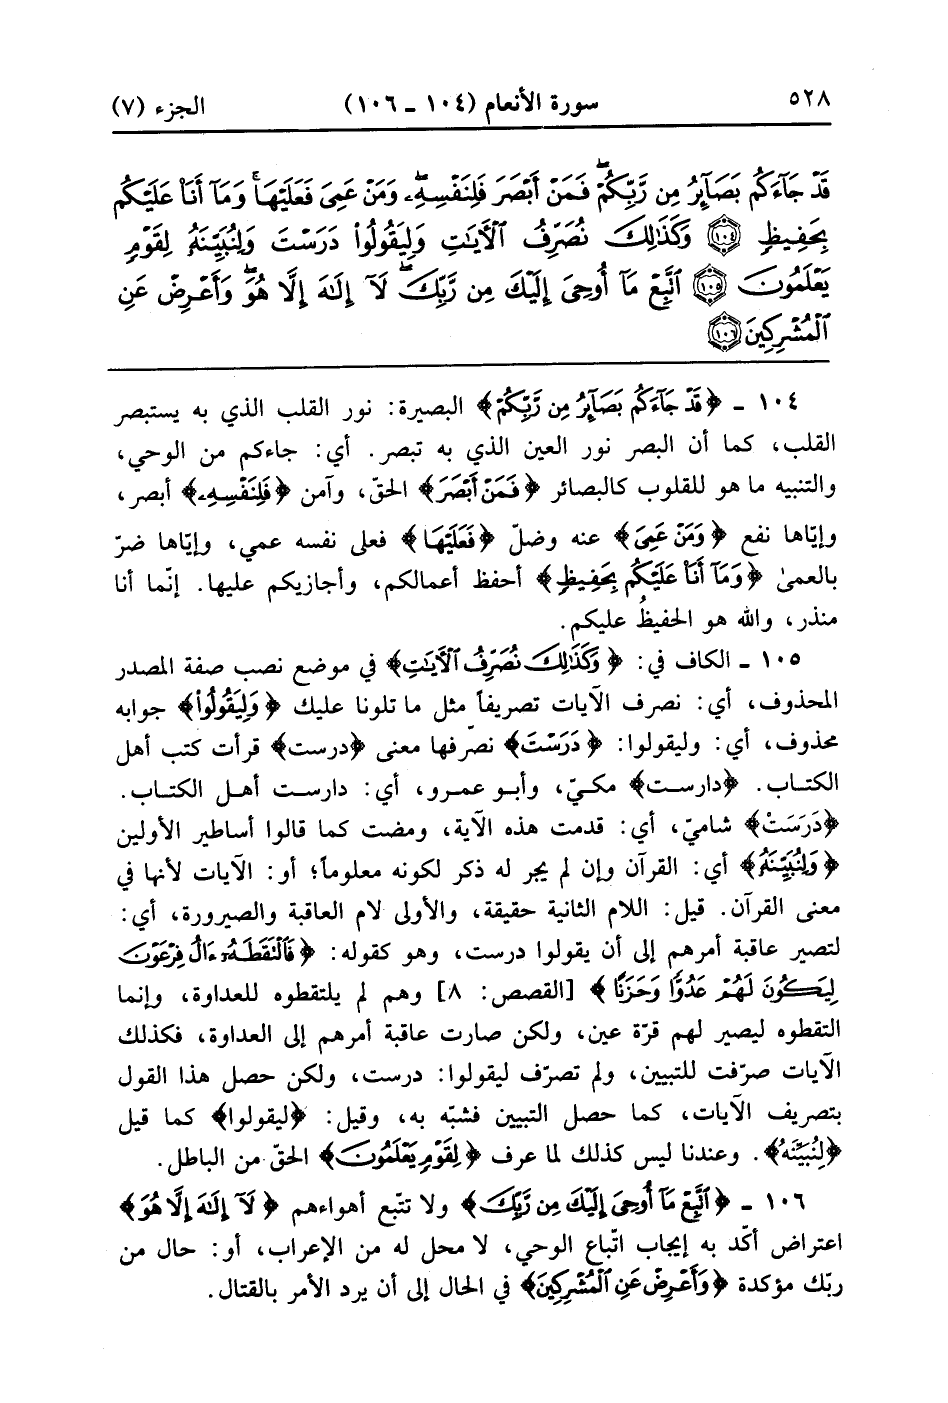 ٥٢٨ سورة الأنعام (١٠٤ - ١٠٦) الجزء (٧)
قَدْ جَآءَكُم بَصَآئِرُ مِن رَّبِّكُمْ ۖ فَمَنْ أَبْصَرَ فَلِنَفْسِهِۦ ۖ وَمَنْ عَمِىَ فَعَلَيْهَا ۚ وَمَآ أَنَا۠ عَلَيْكُم
بِحَفِيظٍ ۝١٠٤ وَكَذَٰلِكَ نُصَرِّفُ ٱلْءَايَٰتِ وَلِيَقُولُوا۟ دَرَسْتَ وَلِنُبَيِّنَهُۥ لِقَوْمٍ
يَعْلَمُونَ ۝١٠٥ ٱتَّبِعْ مَآ أُوحِىَ إِلَيْكَ مِن رَّبِّكَ ۖ لَآ إِلَٰهَ إِلَّا هُوَ ۖ وَأَعْرِضْ عَنِ
ٱلْمُشْرِكِينَ ۝١٠٦
١٠٤ - ﴿قَدْ جَآءَكُم بَصَآئِرُ مِن رَّبِّكُمْ﴾ البصيرة: نور القلب الذي به يستبصر
القلب، كما أن البصر نور العين الذي به تبصر. أي: جاءكم من الوحي،
والتنبيه ما هو للقلوب كالبصائر ﴿فَمَنْ أَبْصَرَ﴾ الحقّ، وآمن ﴿فَلِنَفْسِهِۦ﴾ أبصر،
وإيّاها نفع ﴿وَمَنْ عَمِىَ﴾ عنه وضلّ ﴿فَعَلَيْهَا﴾ فعلى نفسه عمي، وإيّاها ضرّ
بالعمىٰ ﴿وَمَآ أَنَا۠ عَلَيْكُم بِحَفِيظٍ﴾ أحفظ أعمالكم، وأجازيكم عليها. إنّما أنا
منذر، والله هو الحفيظُ عليكم.
١٠٥ - الكاف في: ﴿وَكَذَٰلِكَ نُصَرِّفُ ٱلْءَايَٰتِ﴾ في موضع نصب صفة المصدر
المحذوف، أي: نصرف الآيات تصريفاً مثل ما تلونا عليك ﴿وَلِيَقُولُوا۟﴾ جوابه
محذوف، أي: وليقولوا: ﴿دَرَسْتَ﴾ نصرّفها معنى ﴿درست﴾ قرأت كتب أهل
الكتاب. ﴿دارست﴾ مكيّ، وأبو عمرو، أي: دارست أهل الكتاب.
﴿دَرَسَتْ﴾ شاميّ، أي: قدمت هذه الآية، ومضت كما قالوا أساطير الأولين
﴿وَلِنُبَيِّنَهُۥ﴾ أي: القرآن وإن لم يجر له ذكر لكونه معلوماً؛ أو: الآيات لأنها في
معنى القرآن. قيل: اللام الثانية حقيقة، والأولى لام العاقبة والصيرورة، أي:
لتصير عاقبة أمرهم إلى أن يقولوا درست، وهو كقوله: ﴿فَٱلْتَقَطَهُۥٓ ءَالُ فِرْعَوْنَ
لِيَكُونَ لَهُمْ عَدُوًّا وَحَزَنًا﴾ [القصص: ٨] وهم لم يلتقطوه للعداوة، وإنما
التقطوه ليصير لهم قرّة عين، ولكن صارت عاقبة أمرهم إلى العداوة، فكذلك
الآيات صرّفت للتبيين، ولم تصرّف ليقولوا: درست، ولكن حصل هذا القول
بتصريف الآيات، كما حصل التبيين فشبّه به، وقيل: ﴿ليقولوا﴾ كما قيل
﴿لِنُبَيِّنَهُ﴾. وعندنا ليس كذلك لما عرف ﴿لِقَوْمٍ يَعْلَمُونَ﴾ الحقّ من الباطل.
١٠٦ - ﴿ٱتَّبِعْ مَآ أُوحِىَ إِلَيْكَ مِن رَّبِّكَ﴾ ولا تتّبع أهواءهم ﴿لَآ إِلَٰهَ إِلَّا هُوَ﴾
اعتراض أكّد به إيجاب اتّباع الوحي، لا محل له من الإعراب، أو: حال من
ربّك مؤكدة ﴿وَأَعْرِضْ عَنِ ٱلْمُشْرِكِينَ﴾ في الحال إلى أن يرد الأمر بالقتال.